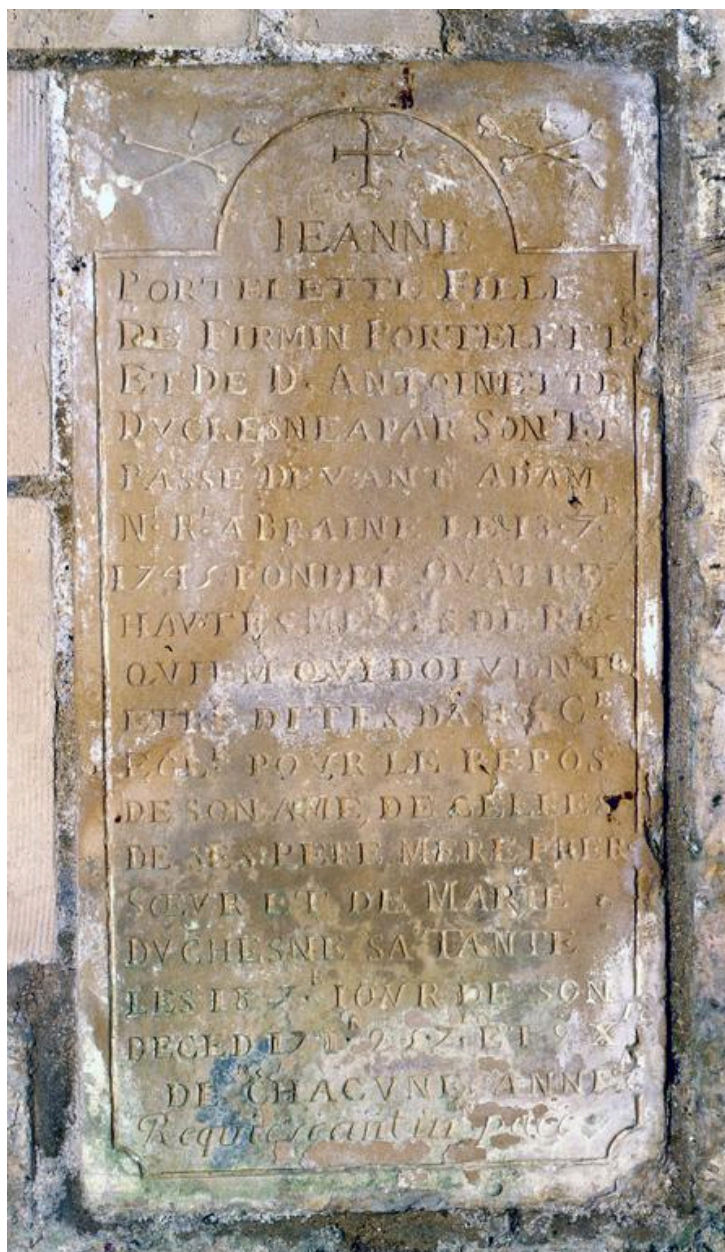 IEANNE
PORTELETTE FILLE
DE FIRMIN PORTELETT
ET DE D. ANTOINETTE
DVCHESNE A PAR SON
PASSE DEVANT ADAM
N.R. A BRAINE LE 13.7.B
FONDEE QVATRE
HAVTES MESSES DE RE-
QVIEM QVI DOIVENT
ETRE DITES DANS C.E
EGLS POVR LE REPOS
DE SON AME DE CELLES
DE SES PERE MERE FRER
SŒVR ET DE MARIE
DVCHESNE SA TANTE
LES 18 IOVR DE SON
DECED ET
DE CHACVNE ANNE
Requiescant in pace